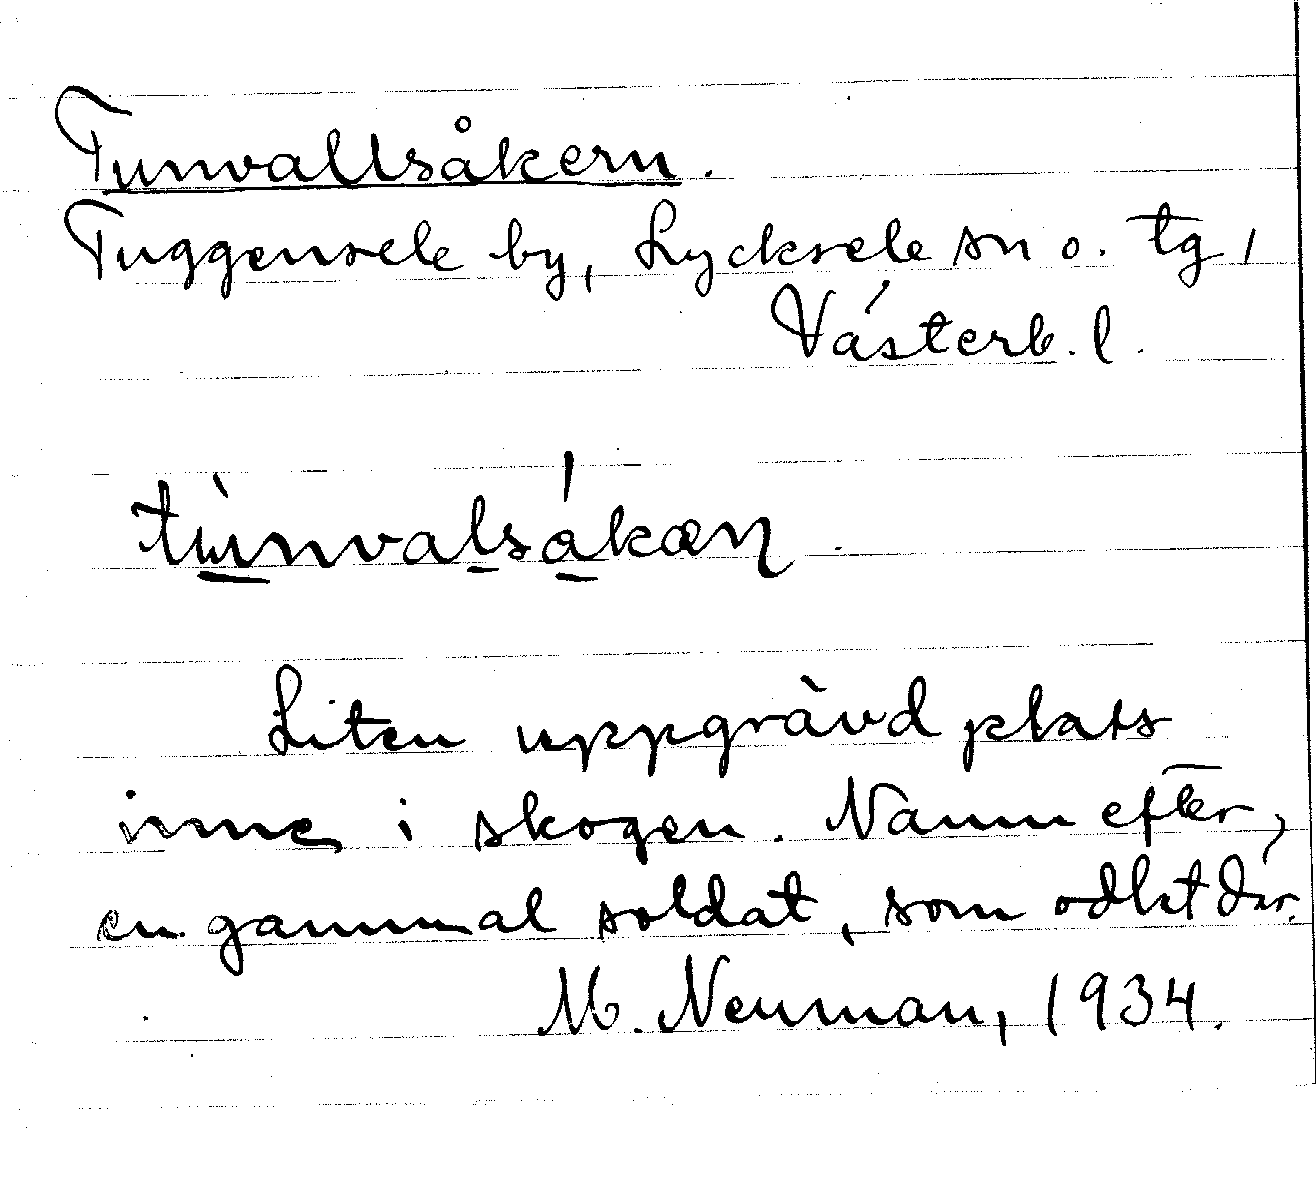 Tunvallsåkern.
Tuggensele by, Lycksele sn o. tg,
Västerb. l.
tùnvalsákæn
Liten uppgrävd plats
inne i skogen. Namn efter
en gammal soldat, som odlat där.
M. Neuman, 1934.